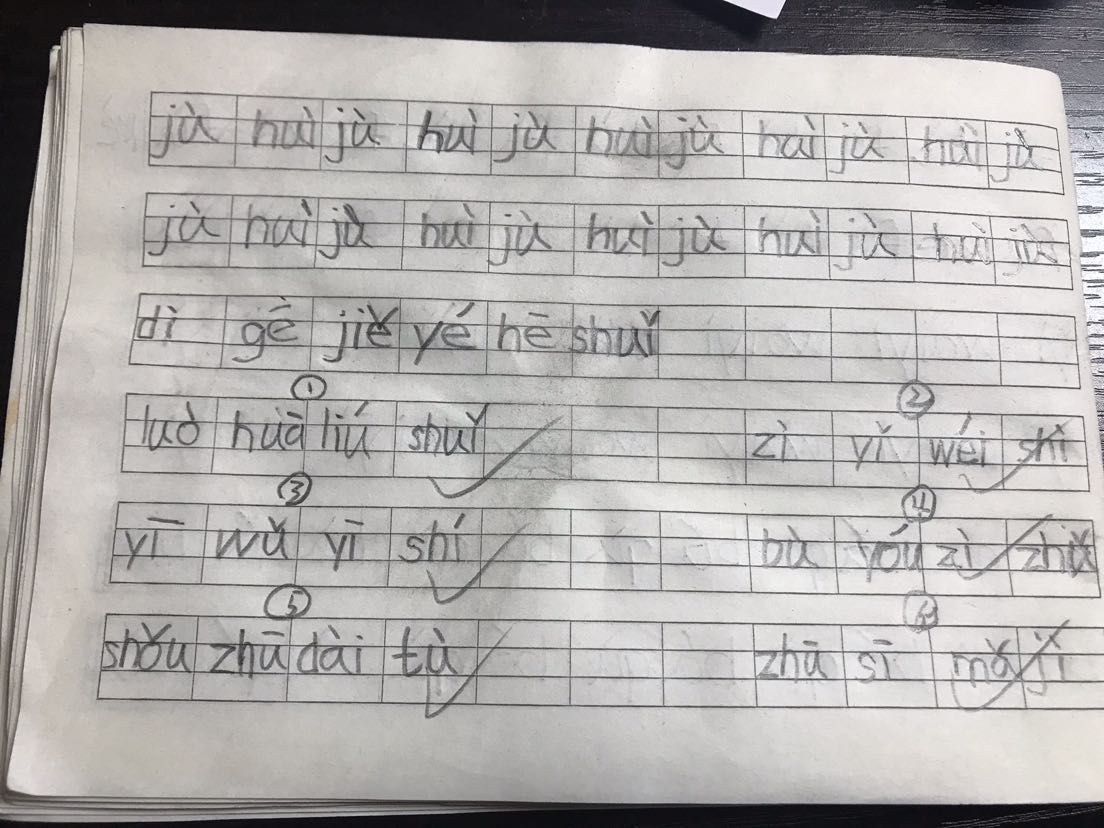 jù huì jù huì jù huì jù huì jù huì jù
jù huì jù huì jù huì jù huì jù huì jù
dì gē jiě yé hē shuǐ
① ②
luò huā liú shuǐ zì yǐ wéi shì
③ ④
yī wǔ yī shí bù yóu zì zhǔ
⑤ ⑥
shǒu zhū dài tù zhū sī mǎ jì